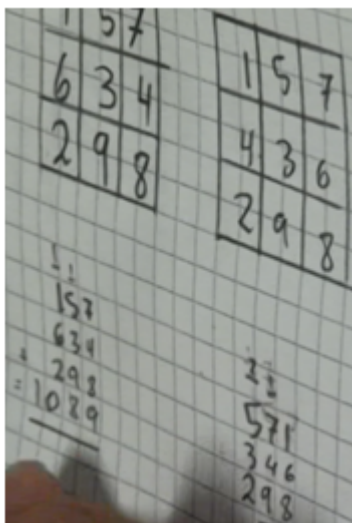 1 5 7
6 3 4
2 9 8
1 5 7
4 3 6
2 9 8
1 1
157
634
+ 298
= 1089
2 1
571
346
298